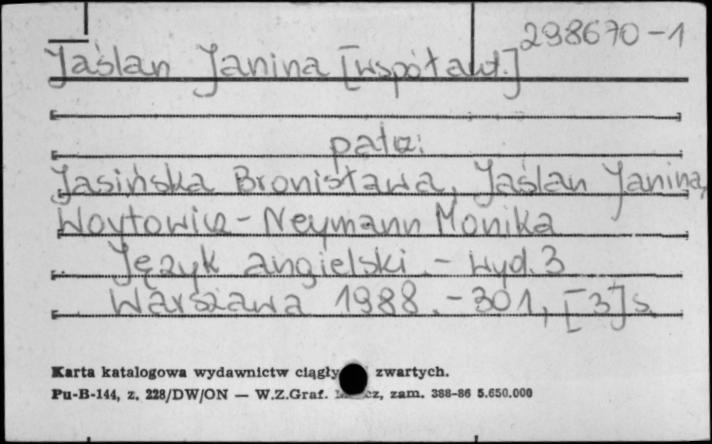 298670-1
Jaślan Janina [współaut.]
patrz:
Jasińska Bronisława, Jaślan Janina,
Woytowicz-Neymann Monika
Język angielski .- Wyd. 3
Warszawa 1988 .- 301, [3] s.
Karta katalogowa wydawnictw ciągły zwartych.
Pu-B-144, z. 228/DW/ON — W.Z.Graf. zam. 388-86 5.650.000